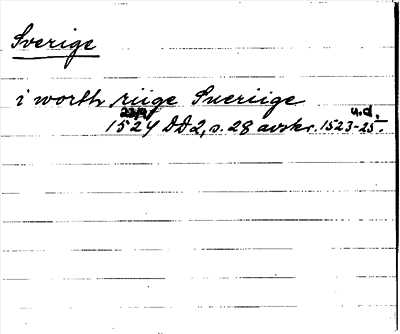 Sverige
i worth riige Sueriige
22/9 u.d.
1524 DD2, s. 28 avskr. 1523-25.